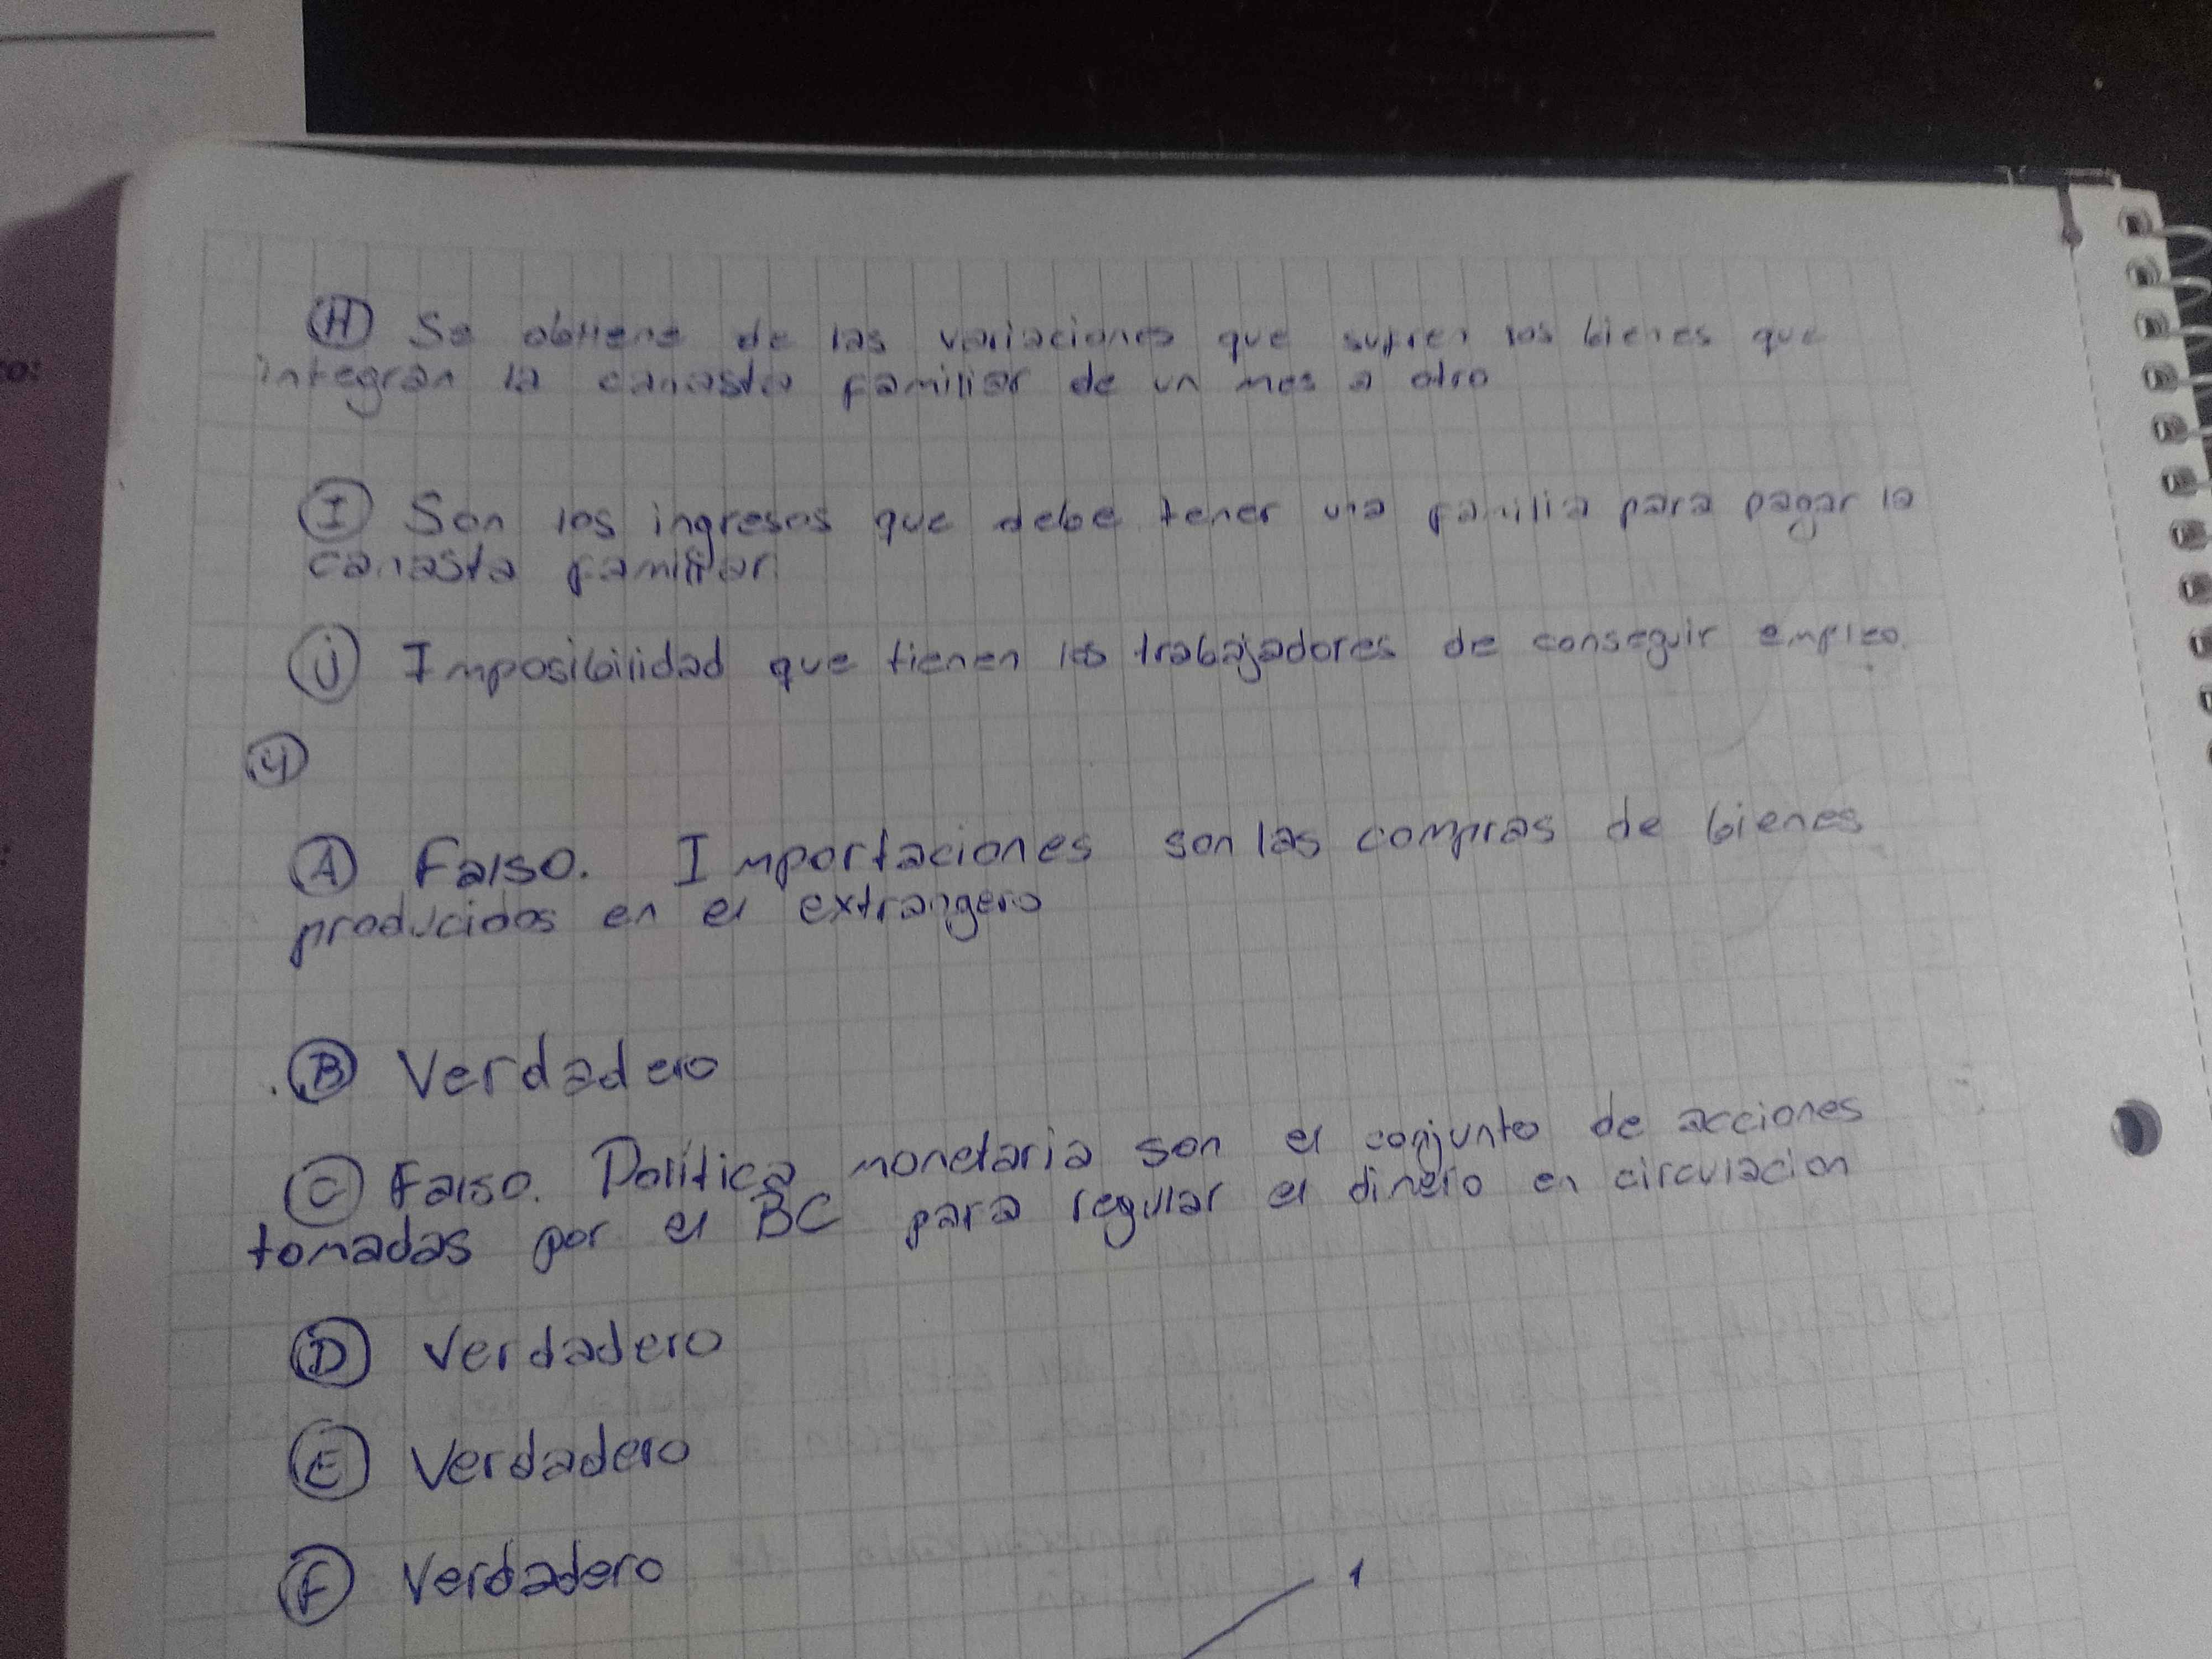 co:
:
(H) Se obtiene de las variaciones que sufren los bienes que
integran la canasta familiar de un mes a otro
(I) Son los ingresos que debe tener una familia para pagar la
canasta familiar.
(J) Imposibilidad que tienen los trabajadores de conseguir empleo.
(4)
(A) Falso. Importaciones son las compras de bienes
producidos en el extrangero
(B) Verdadero
(C) Falso. Política monetaria son el conjunto de acciones
tomadas por el BC para regular el dinero en circulacion
(D) Verdadero
(E) Verdadero
(F) Verdadero
1